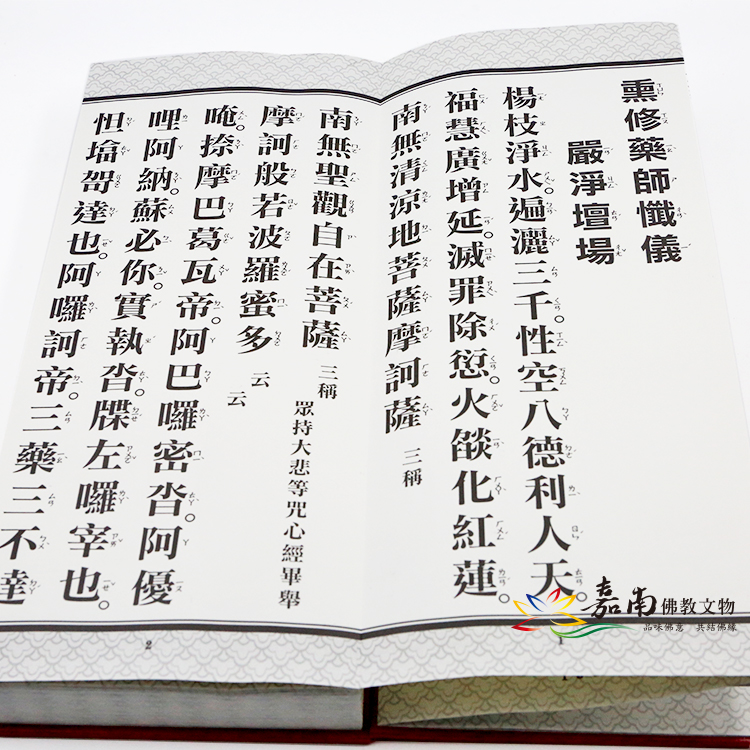 熏修藥師懺儀
嚴淨壇場
楊枝淨水。遍灑三千。性空八德利人天。
福慧廣增延。滅罪除愆。火燄化紅蓮。
南無清涼地菩薩摩訶薩 三稱
南無聖觀自在菩薩 三稱
眾持大悲等咒心經畢舉
摩訶般若波羅蜜多 云云
唵。捺摩巴葛瓦帝。阿巴囉密沓。阿優
哩阿納。蘇必你。實執沓。牒左囉宰也。
怛塔哿達也。阿囉訶帝。三藥三不達
2
1
嘉南佛教文物
品味佛意 共結佛緣